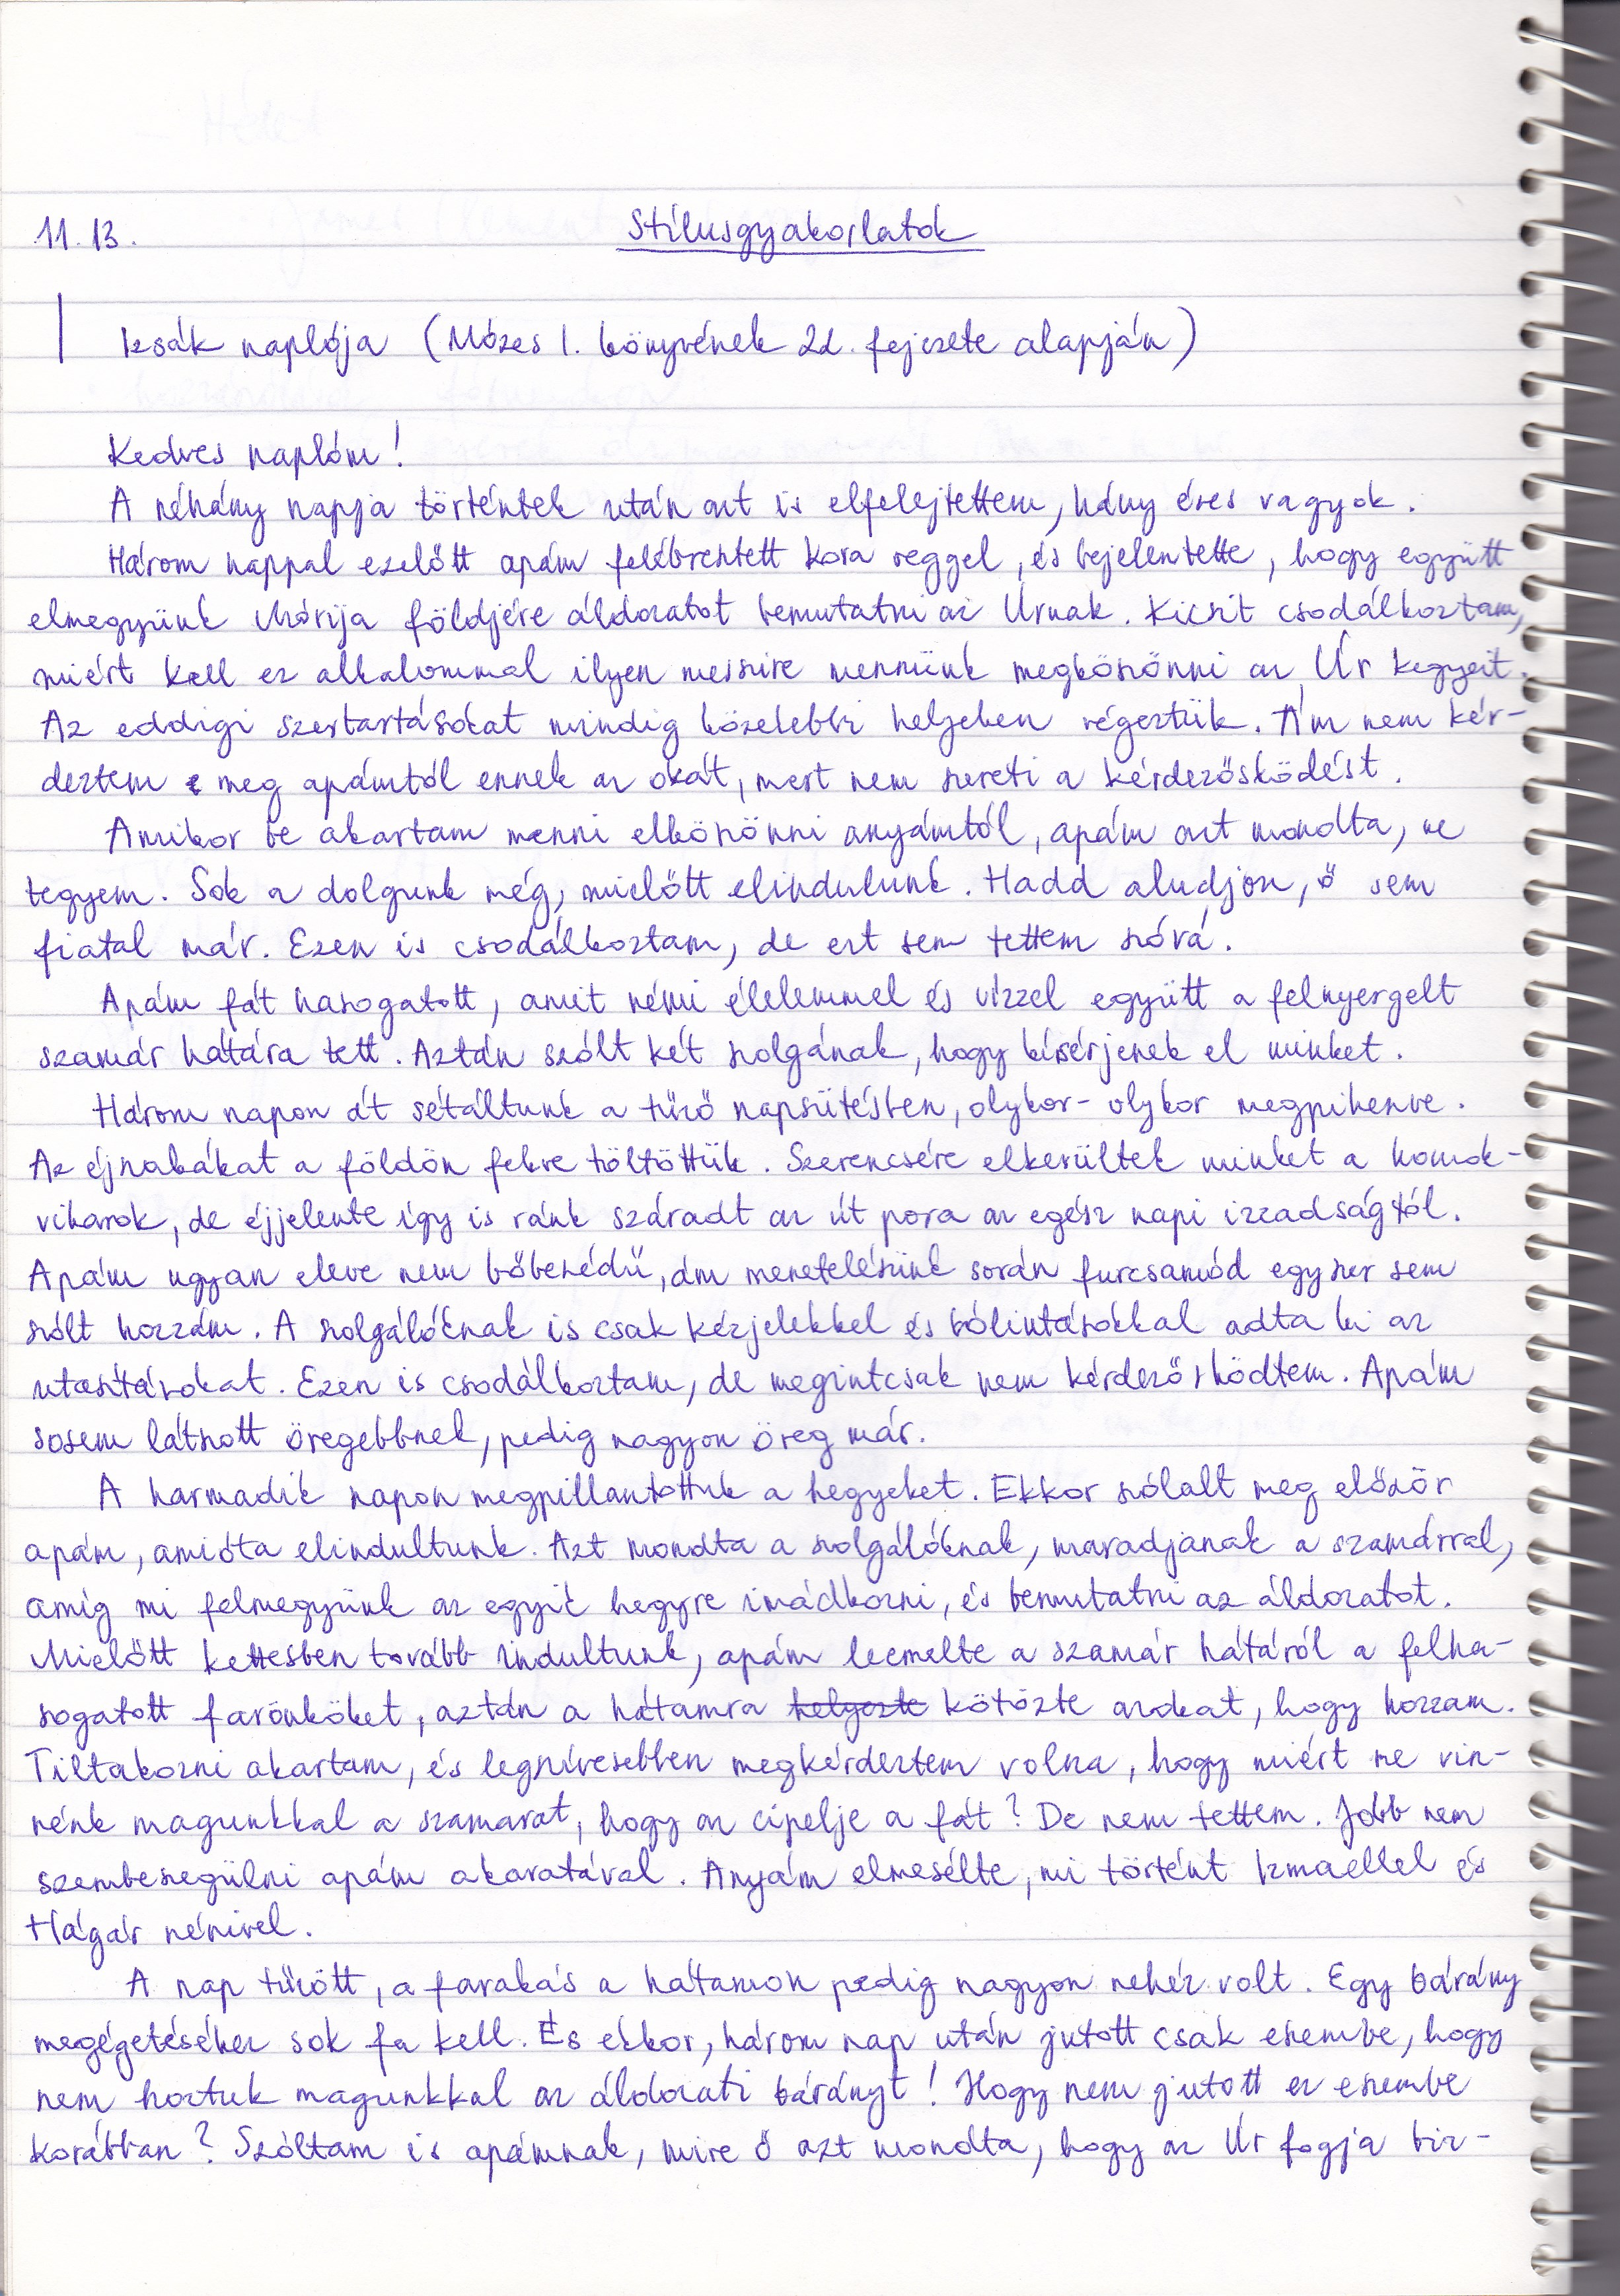 11. 13. Stílusgyakorlatok
Izsák naplója (Mózes I. könyvének 22. fejezete alapján)
Kedves naplóm!
A néhány napja történtek után azt is elfelejtettem, hány éves vagyok.
Három nappal ezelőtt apám felébresztett kora reggel, és bejelentette, hogy együtt
elmegyünk Mórija földjére áldozatot bemutatni az Úrnak. Kicsit csodálkoztam,
miért kell ez alkalommal ilyen messzire mennünk megköszönni az Úr kegyeit.
Az eddigi szertartásokat mindig közelebbi helyeken végeztük. Ám nem kér-
deztem meg apámtól ennek az okát, mert nem szereti a kérdezősködést.
Amikor be akartam menni elköszönni anyámtól, apám azt mondta, ne
tegyem. Sok a dolgunk még, mielőtt elindulunk. Hadd aludjon, ő sem
fiatal már. Ezen is csodálkoztam, de ezt sem tettem szóvá.
Apám fát hasogatott, amit némi élelemmel és vízzel együtt a felnyergelt
szamár hátára tett. Aztán szólt két szolgának, hogy kísérjenek el minket.
Három napon át sétáltunk a tűző napsütésben, olykor-olykor megpihenve.
Az éjszakákat a földön fekve töltöttük. Szerencsére elkerültek minket a homok-
viharok, de éjjelente így is ránk száradt az út pora az egész napi izzadságtól.
Apám ugyan eleve nem bőbeszédű, ám menetelésünk során furcsamód egyszer sem
szólt hozzám. A szolgálóknak is csak kézjelekkel és bólintásokkal adta ki az
utasításokat. Ezen is csodálkoztam, de megintcsak nem kérdezősködtem. Apám
sosem látszott öregebbnek, pedig nagyon öreg már.
A harmadik napon megpillantottuk a hegyeket. Ekkor szólalt meg először
apám, amióta elindultunk. Azt mondta a szolgálóknak, maradjanak a szamárral,
amíg mi felmegyünk az egyik hegyre imádkozni, és bemutatni az áldozatot.
Mielőtt kettesben tovább indultunk, apám leemelte a szamár hátáról a felha-
sogatott farönköket, aztán a hátamra helyezte kötözte azokat, hogy hozzam.
Tiltakozni akartam, és legszívesebben megkérdeztem volna, hogy miért ne vin-
nénk magunkkal a szamarat, hogy az cipelje a fát? De nem tettem. Jobb nem
szembeszegülni apám akaratával. Anyám elmesélte, mi történt Izmaellel és
Hágár nénivel.
A nap tűzött, a farakás a hátamon pedig nagyon nehéz volt. Egy bárány
megégetéséhez sok fa kell. És ekkor, három nap után jutott csak eszembe, hogy
nem hoztuk magunkkal az áldozati bárányt! Hogy nem jutott ez eszembe
korábban? Szóltam is apámnak, mire ő azt mondta, hogy az Úr fogja biz-